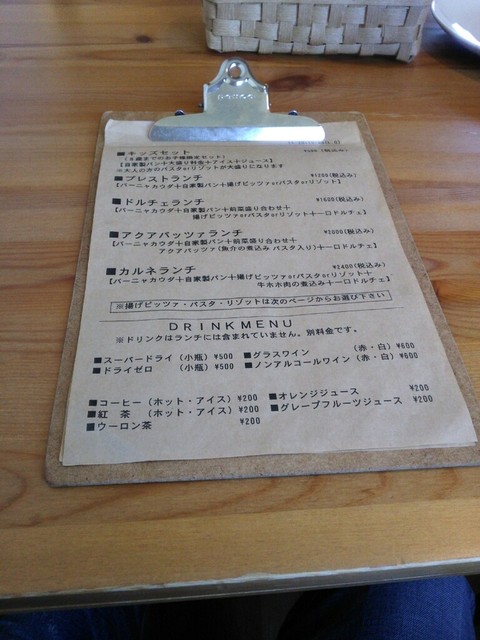 ■キッズセット
(8歳までのお子様限定セット)
【自家製パン+大盛り料金+アイス+ジュース】
※大人の方のパスタorリゾットが大盛りになります
■プレストランチ ¥1200(税込み)
【バーニャカウダ+自家製パン+揚げピッツァorパスタorリゾット】
■ドルチェランチ ¥1500(税込み)
【バーニャカウダ+自家製パン+前菜盛り合わせ+
揚げピッツァorパスタorリゾット+一口ドルチェ】
■アクアパッツァランチ ¥2000(税込み)
【バーニャカウダ+自家製パン+前菜盛り合わせ+
アクアパッツァ(魚介の煮込み パスタ入り)+一口ドルチェ】
■カルネランチ ¥2400(税込み)
【バーニャカウダ+自家製パン+揚げピッツァorパスタorリゾット+
牛ホホ肉の煮込み+一口ドルチェ】
※揚げピッツァ・パスタ・リゾットは次のページからお選び下さい
DRINKMENU
※ドリンクはランチには含まれていません。別料金です。
■スーパードライ (小瓶) ¥500 ■グラスワイン (赤・白) ¥600
■ドライゼロ (小瓶) ¥500 ■ノンアルコールワイン (赤・白) ¥600
■コーヒー (ホット・アイス) ¥200 ■オレンジジュース ¥200
■紅 茶 (ホット・アイス) ¥200 ■グレープフルーツジュース ¥200
■ウーロン茶 ¥200